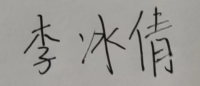 李冰倩